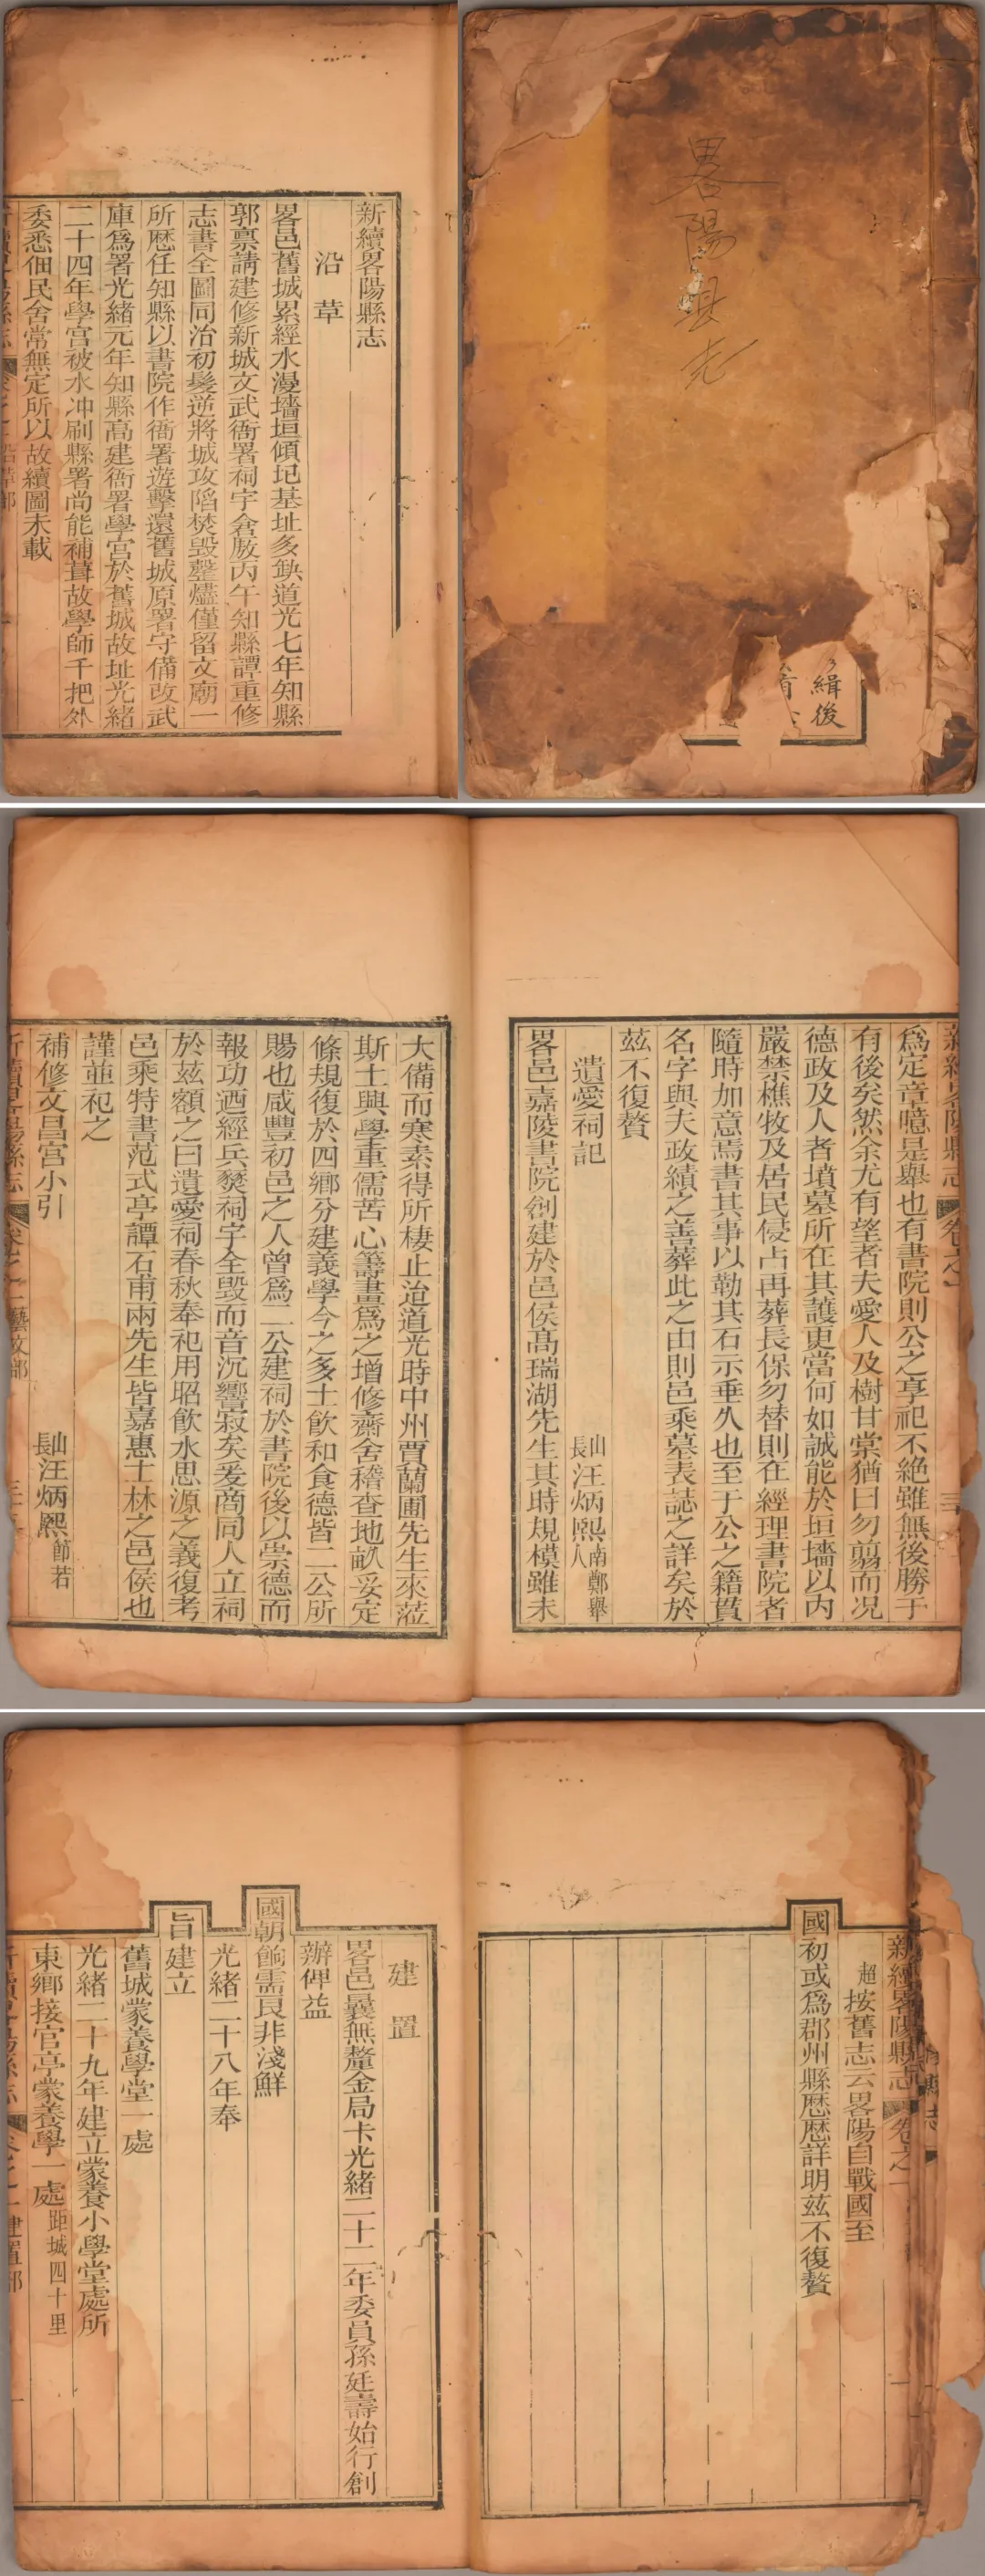 畧陽縣志
緝後
新續畧陽縣志
沿革
畧邑舊城累經水漫墻垣傾圮基址多缺道光七年知縣
郭禀請建修新城文武衙署祠宇倉廒丙午知縣譚重修
志書全圖同治初髮逆將城攻陷焚毁整燼僅留文廟一
所歷任知縣以書院作衙署遊擊還舊城原署守備改武
庫爲署光緒元年知縣高建衙署學宫於舊城故址光緒
二十四年學宫被水冲刷縣署尚能補葺故學師千把外
委悉佃民舍常無定所以故續圖未載
新續畧陽縣志 卷之一
爲定章噫是舉也有書院則公之享祀不絶雖無後勝于
有後矣然余尤有望者夫愛人及樹甘棠猶曰勿翦而况
德政及人者墳墓所在其護更當何如誠能於垣墻以内
嚴禁樵牧及居民侵占再葬長保勿替則在經理書院者
隨時加意焉書其事以勒其石示垂久也至于公之籍貫
名字與夫政績之善葬此之由則邑乘墓表誌之詳矣於
茲不復贅
遺愛祠記 長山汪炳煕南鄭舉人
畧邑嘉陵書院創建於邑侯高瑞湖先生其時規模雖未
大備而寒素得所棲止迨道光時中州賈蘭圃先生來蒞
斯土興學重儒苦心籌畫爲之增修齋舍稽查地畝妥定
條規復於四鄉分建義學今之多士飲和食德皆二公所
賜也咸豐初邑之人曾爲二公建祠於書院後以崇德而
報功迺經兵燹祠宇全毁而音沉響寂矣爰商同人立祠
於茲額之曰遺愛祠春秋奉祀用昭飲水思源之義復考
邑乘特書范式亭譚石甫兩先生皆嘉惠士林之邑侯也
謹並祀之
補修文昌宫小引 長山汪炳煕節若
新續畧陽縣志 卷之一 藝文部
新續畧陽縣志 卷之一
超按舊志云畧陽自戰國至
國初或爲郡州縣歷歷詳明茲不復贅
建置
畧邑曩無釐金局卡光緒二十二年委員孫廷壽始行創
辦俾益
國朝餉需良非淺鮮
光緒二十八年奉
旨建立
舊城蒙養學堂一處
光緒二十九年建立蒙養小學堂處所
東鄉接官亭蒙養學一處距城四十里
新續畧陽縣志 卷之一 建置部